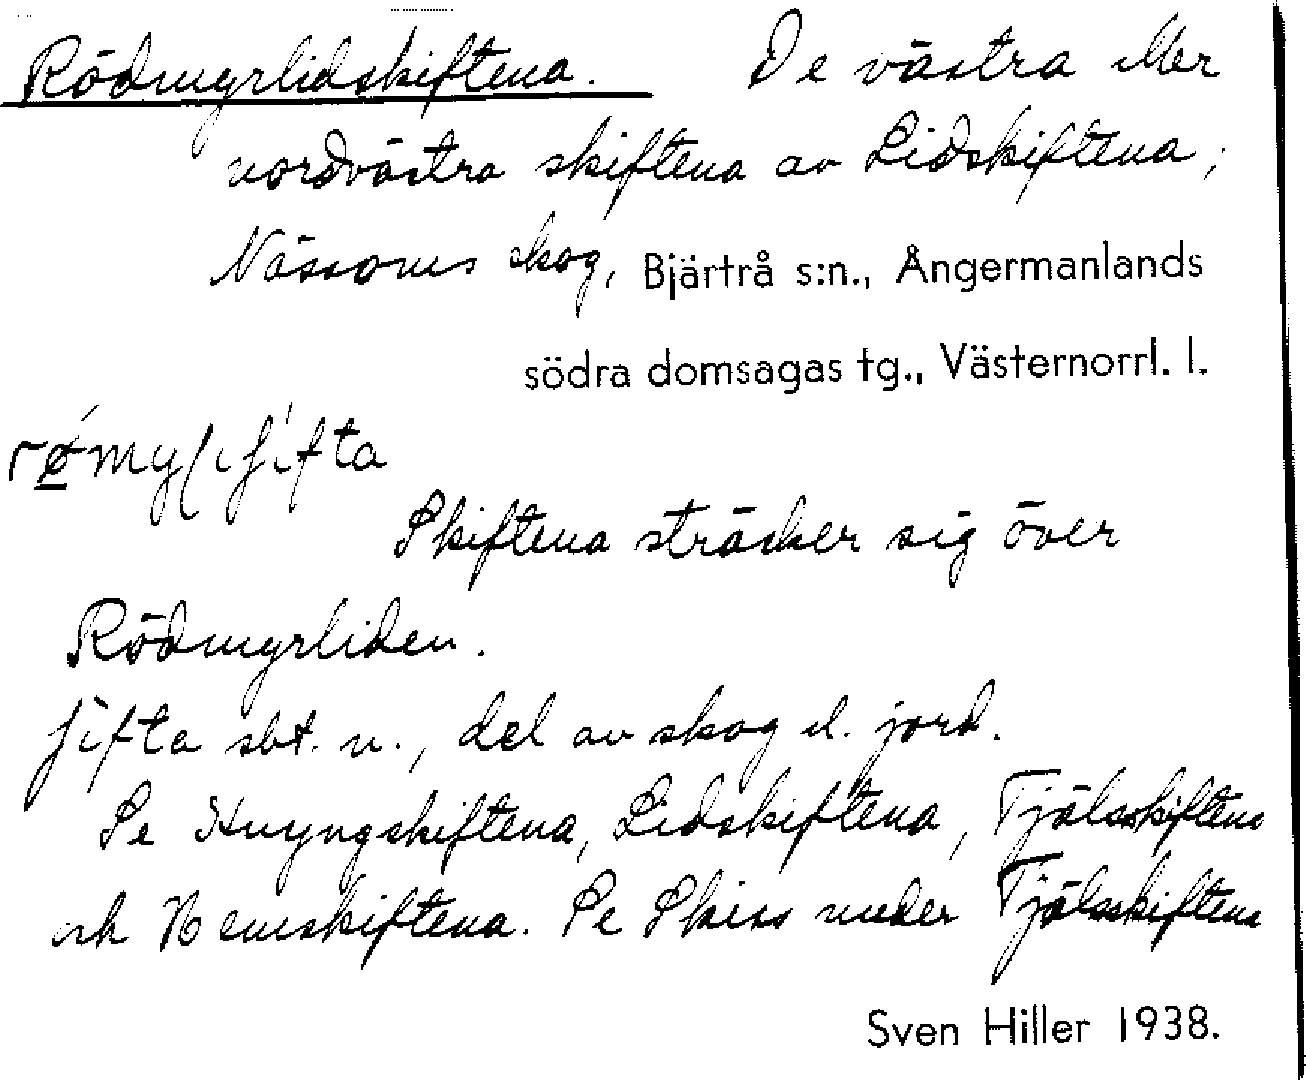 Rödmyrlidskiftena. De västra eller
nordvästra skiftena av Lidskiftena;
Nässoms skog, Bjärtrå s:n., Ångermanlands
södra domsagas tg., Västernorrl. l.
Skiftena sträcker sig över
Rödmyrliden.
sbt. n., del av skog el. jord.
Se Lidskiftena, Tjälsskiftena
och Hemskiftena. Se Skiss under Tjälsskiftena
Sven Hiller 1938.